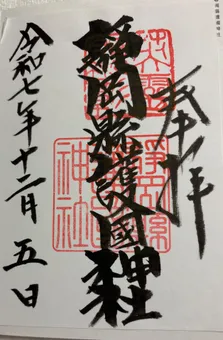 奉拝
靜岡縣護國神社
令和七年十二月五日
英霊
静岡縣
神社